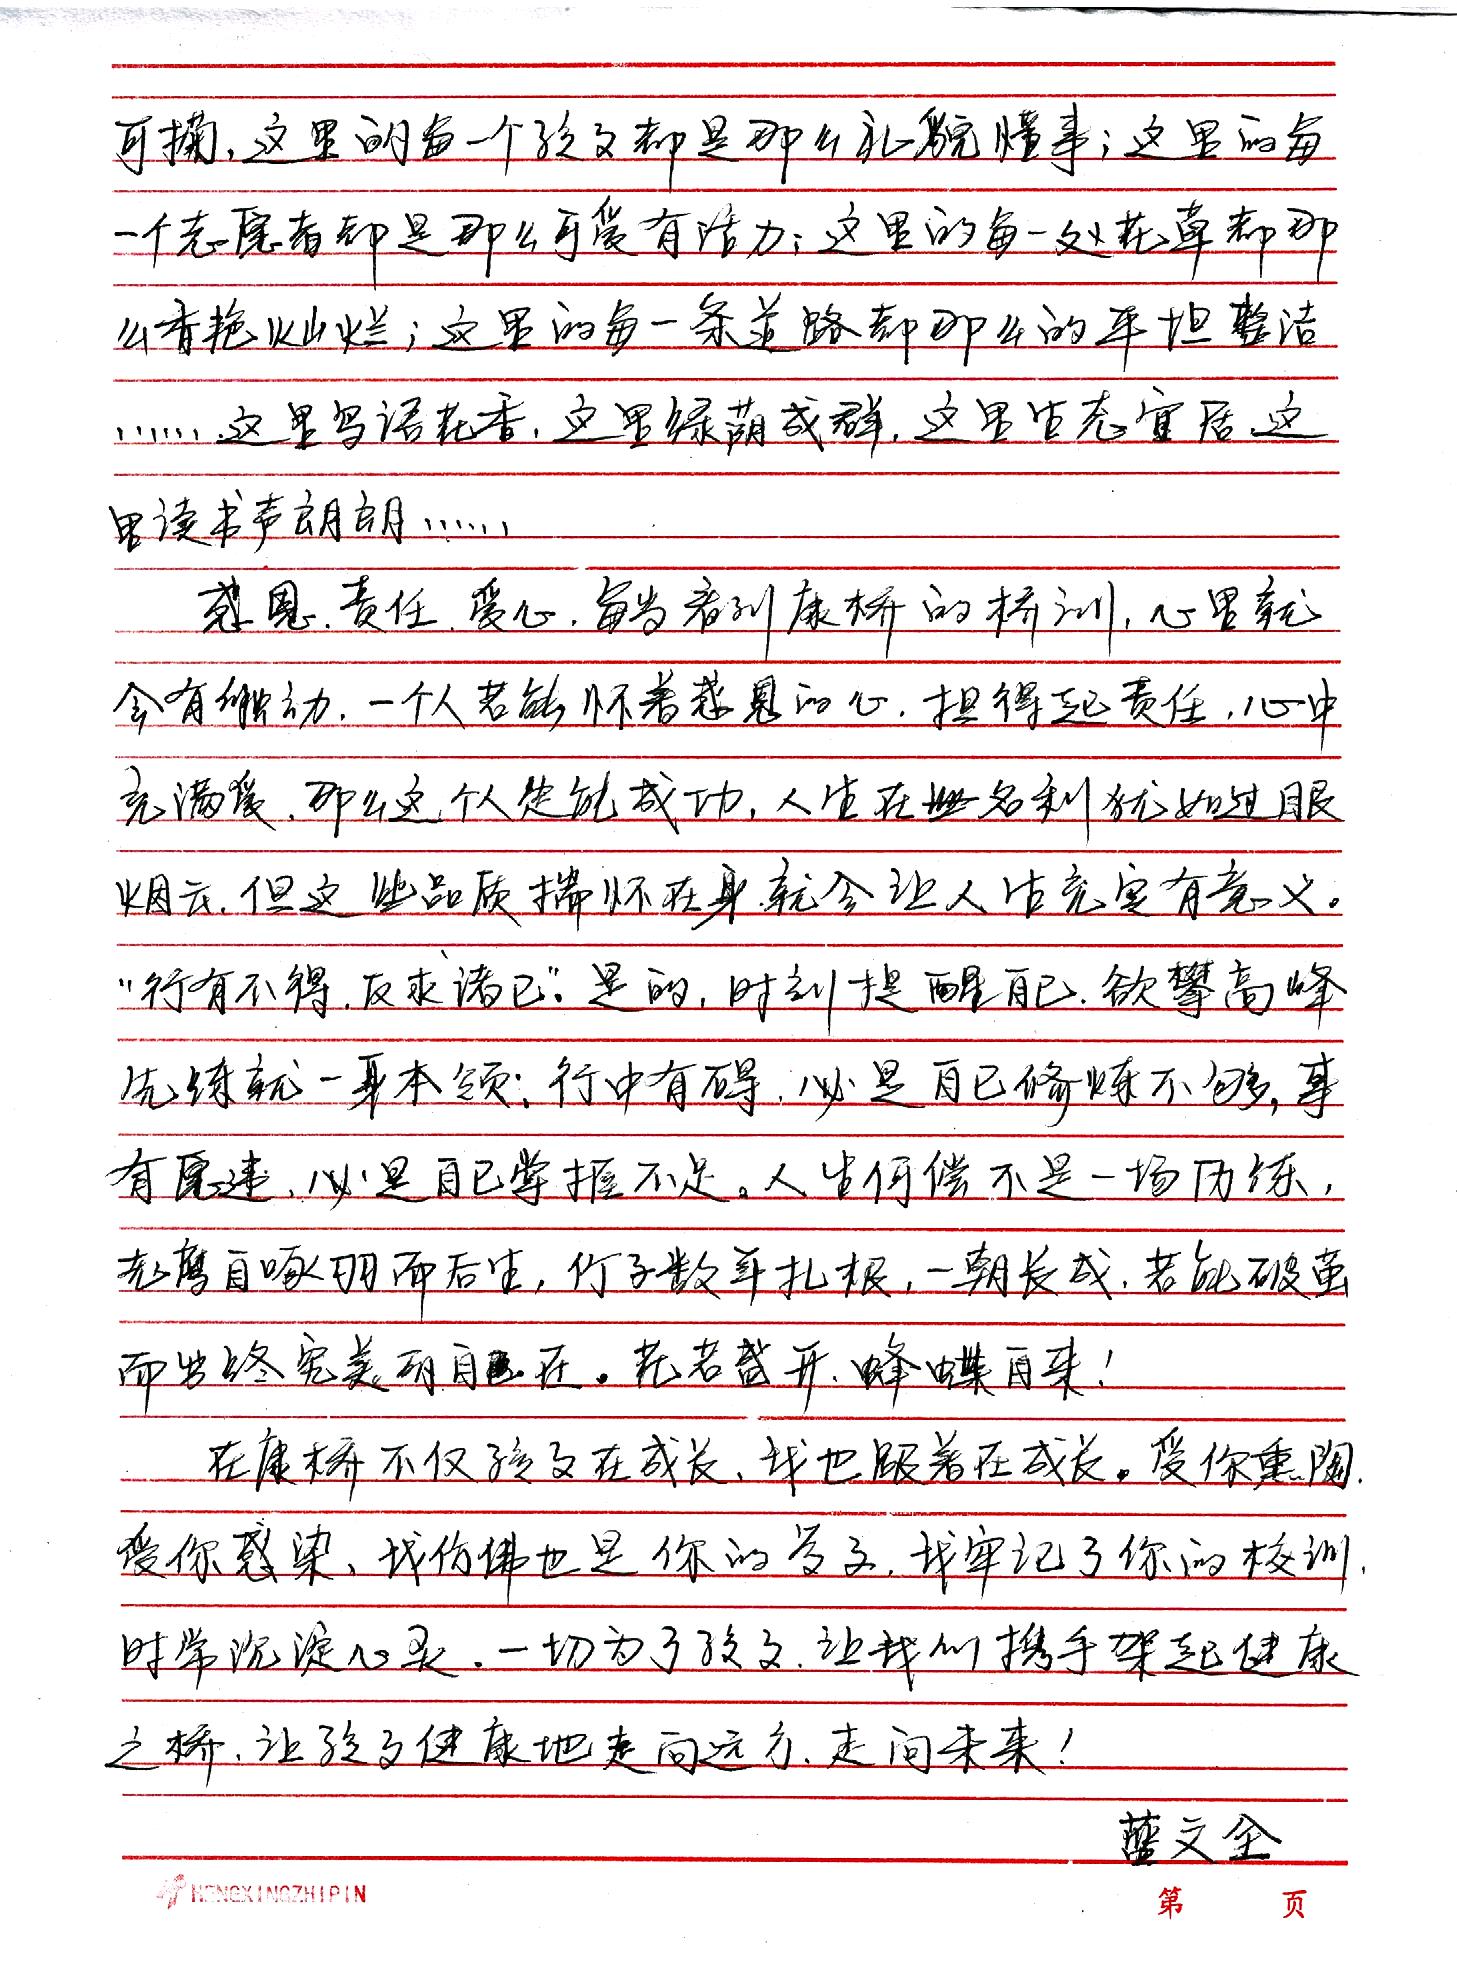 可掬，这里的每一个孩子都是那么礼貌懂事；这里的每
一个志愿者都是那么可爱有活力；这里的每一处花草都那
么香艳灿烂；这里的每一条道路都那么的平坦整洁
……，这里鸟语花香，这里绿荫成群，这里生态宜居，这
里读书声朗朗……
感恩、责任、爱心，每当看到康桥的桥训，心里就
会有触动，一个人若能怀着感恩的心，担得起责任，心中
充满爱，那么这个人定能成功，人生在世名利犹如过眼
烟云，但这些品质揣怀在身就会让人活充实有意义。
“行有不得，反求诸己”。是的，时刻提醒自己，欲攀高峰
先练就一身本领；行中有碍，必是自己修炼不够，事
有愿违，必是自己掌握不足。人生何偿不是一场历练，
老鹰自啄羽而后生，竹子数年扎根，一朝长成，若能破茧
而出终究美丽自在。花若盛开，蜂蝶自来！
在康桥不仅孩子在成长，我也跟着在成长。受你熏陶，
受你感染，我仿佛也是你的学子，我牢记了你的校训，
时常沉淀心灵。一切为了孩子，让我们携手架起健康
之桥，让孩子健康地走向远方，走向未来！
蓝文全
HENGXINGZHIPIN 第 页